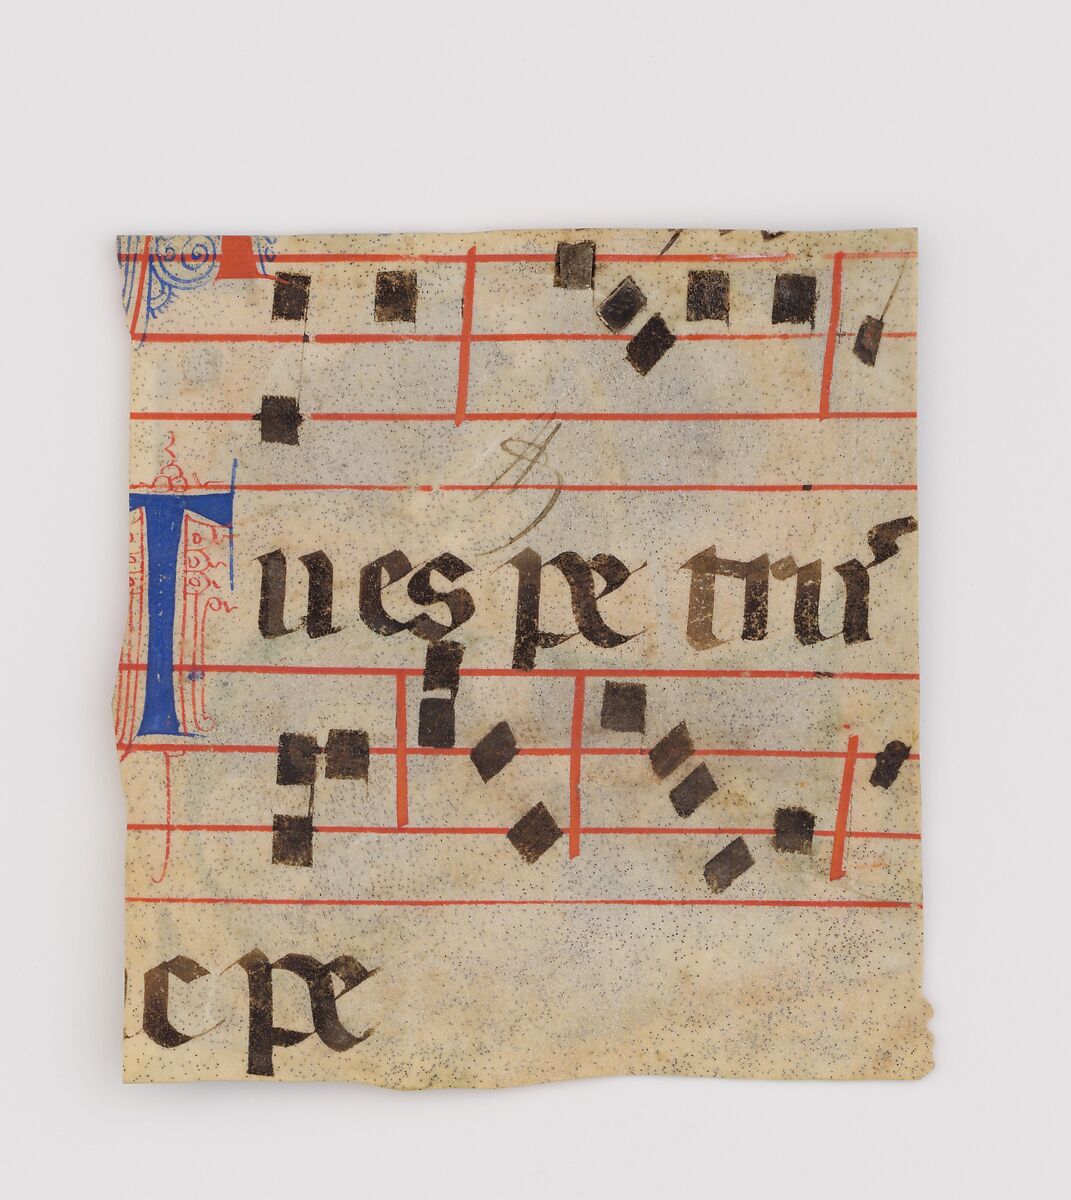 Tu es pe tru
c pe